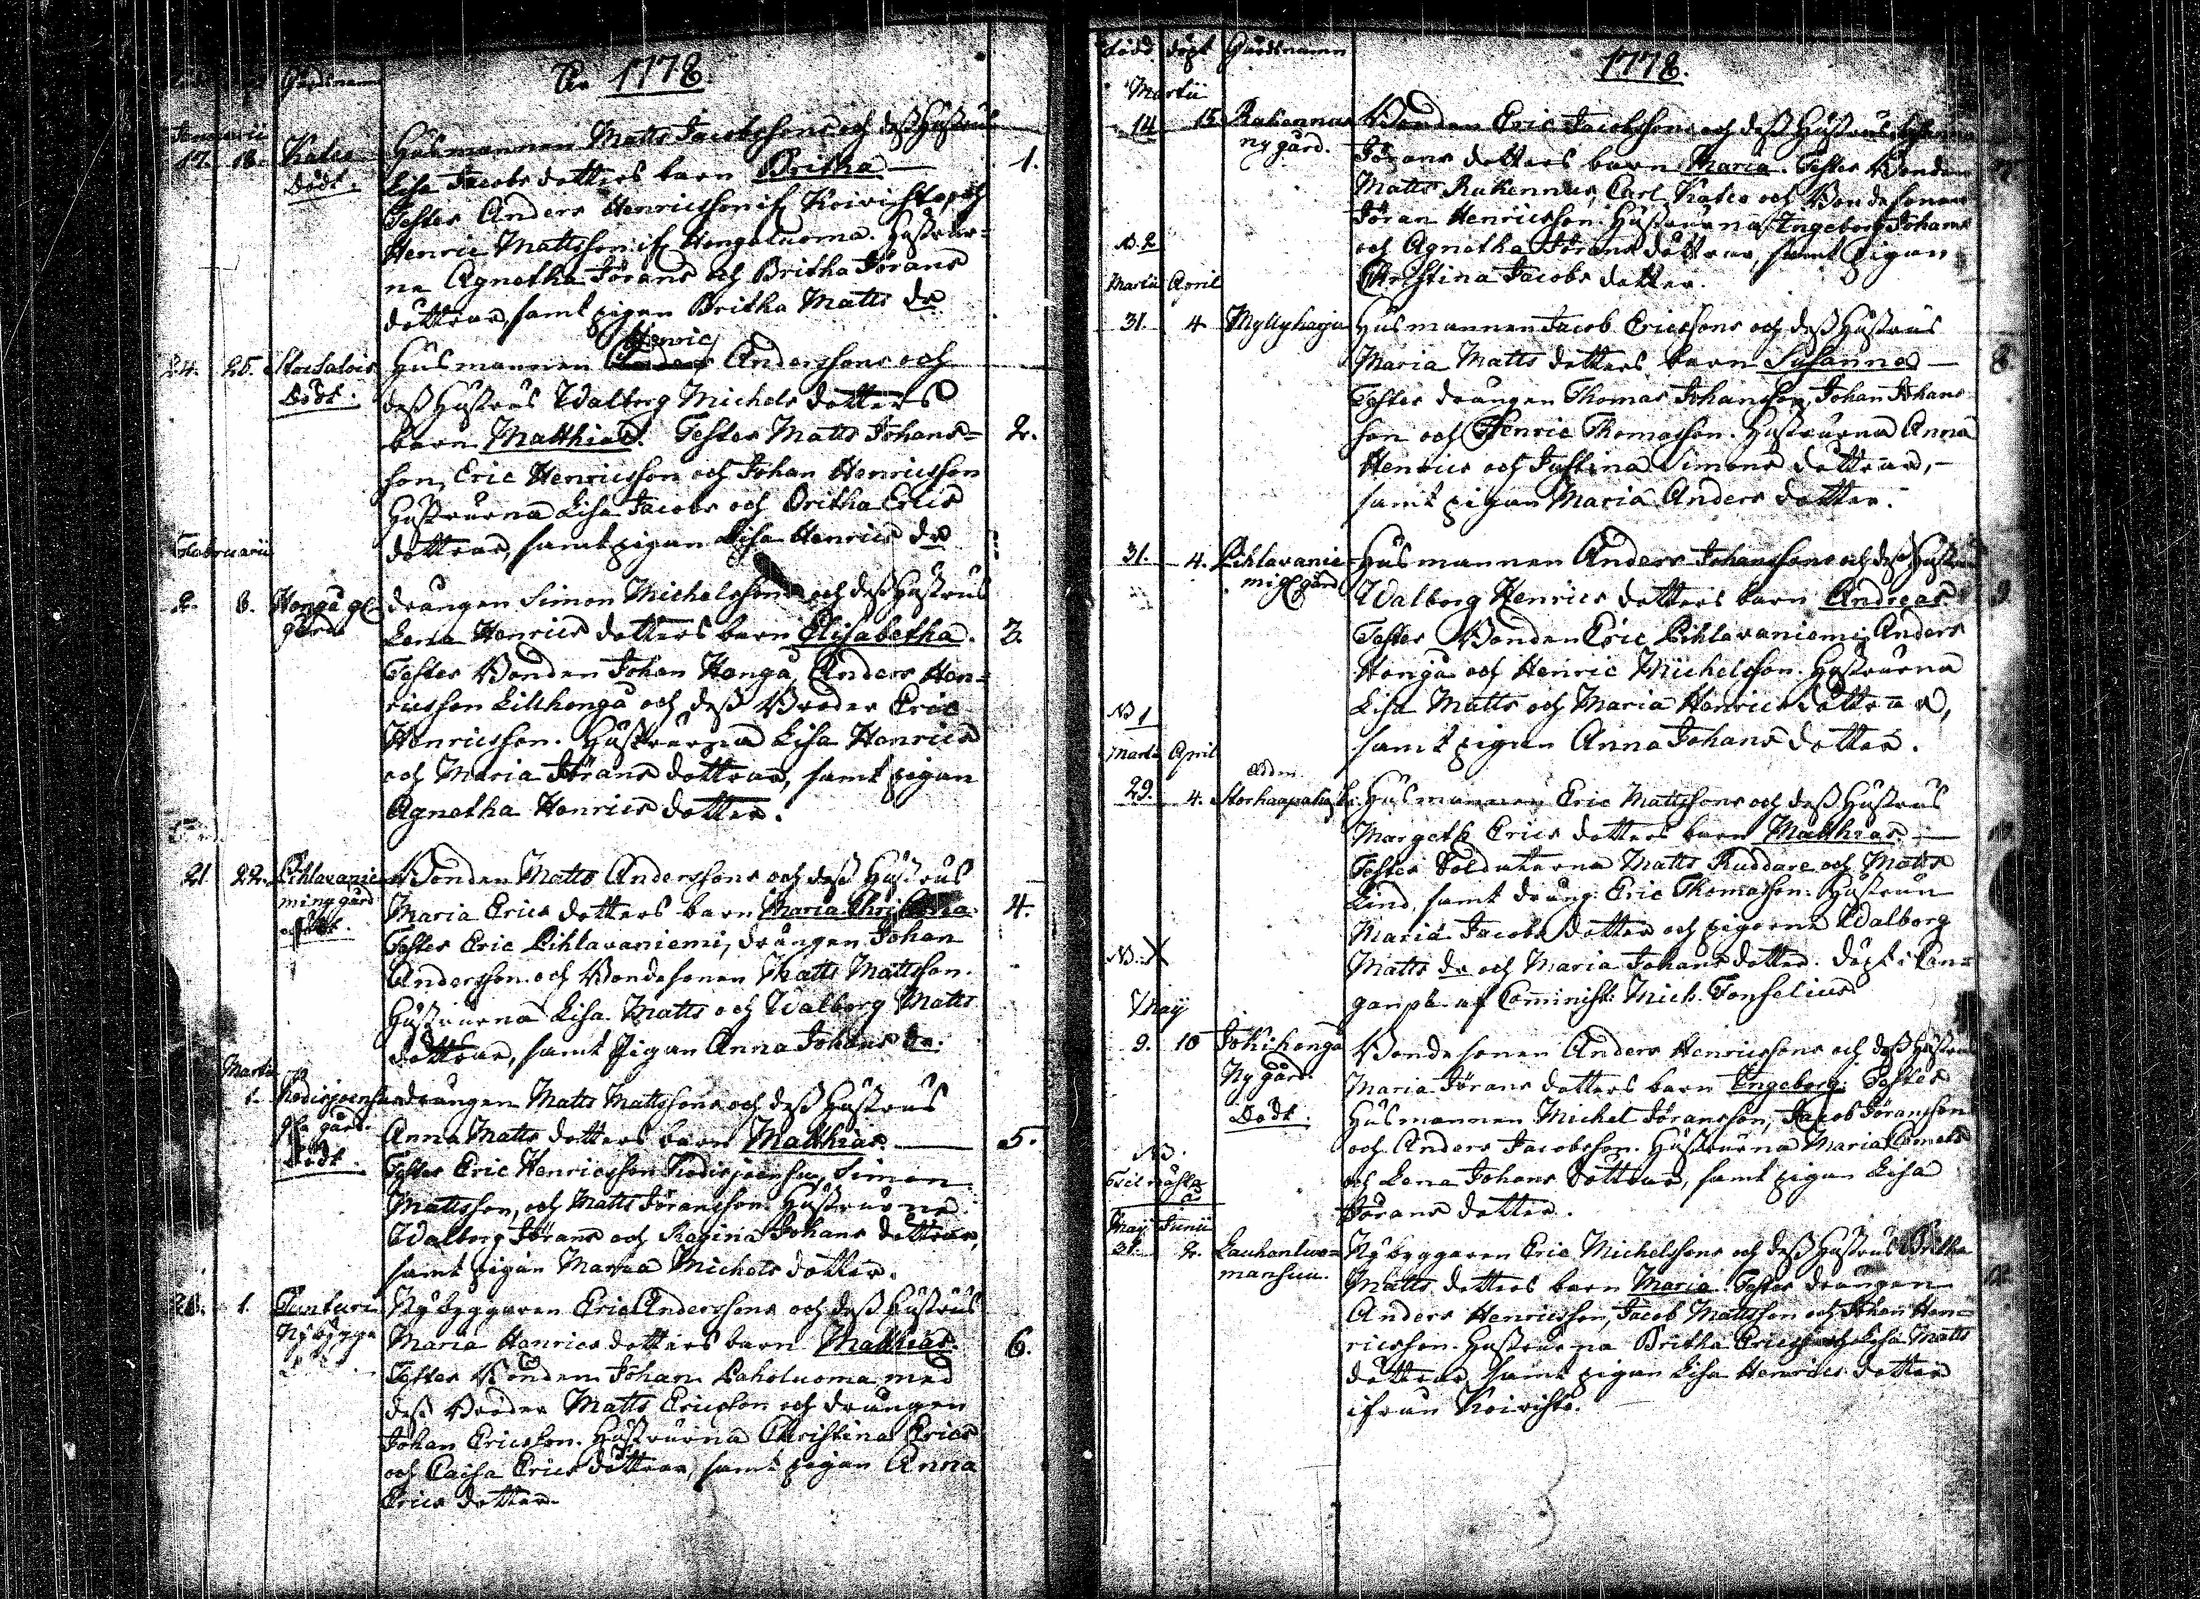 Gårdsnamn
Ao 1778.
Januarii
17. 18. Katio Husmannen Matts Jacobssons och dess Hustrus
Lisa Jacobs dotters barn Britha 1.
Dödt.
Testes Anders Henricsson if. Koivisto, och
Henric Mattsson if. Hongoluoma. Hustrur=
na Agnetha Jörans och Britha Jörans
döttrar, samt pigan Britha Matts dr
Henric
24. 25. Storsalois Husmannen Anderssons och
Dödt. dess Hustrus Walborg Michels dotters
barn Matthias. Testes Matts Johans= 2.
son, Eric Henricsson och Johan Henricsson
Hustrurna Lisa Jacobs och Britha Erics
döttrar, samt pigan Lisa Henrics dr
Februarii
2. 8. Honga gl. drängen Simon Michelssons och dess Hustrus
gård Lena Henrics dotters barn Elisabetha. 3.
Testes Bonden Johan Honga, Anders Hen=
ricsson Lillhonga och dess Broder Eric
Henricsson. Hustrurna Lisa Henrics
och Maria Jörans döttrar, samt pigan
Agnetha Henrics dotter.
21 22. Pihlavanie= Bonden Matts Anderssons och dess Hustrus
mi ny gård Maria Erics dotters barn Maria Christina. 4.
Testes Eric Pihlavaniemi, drängen Johan
Andersson och Bondesonen Matts Mattsson.
Hustrurna Lisa Matts och Walborg Matts
döttrar, samt Pigan Anna Johans dr.
Martii
1. Kodisjoensuu drängen Matts Mattssons och dess Hustrus
gla gård. Anna Matts dotters barn Matthias. 5.
Dödt Testes Eric Henricsson Kodisjoensuu, Simon
Mattsson, och Matts Jöransson. Hustrurna
Walborg Jörans och Regina Johans döttrar,
samt pigan Maria Michels dotter.
1. Tunturi Nybyggaren Eric Anderssons och dess Hustrus
Nybygge Maria Henrics dotters barn Matthias. 6.
Testes Bonden Johan Paholuoma med
dess Broder Matts Ericsson och drängen
Johan Ericsson. Hustrurna Christina Erics
och Caisa Erics döttrar, samt pigan Anna
Erics dotter.
Född Döpt Gårdsnamn
1778.
Martii
14 15 Rakennus Bonden Eric Jacobssons och dess Hustrus
ny gård. Jörans dotters barn Maria. Testes Bonden 7
Matts Rakennus, Carl Katio och Bondesonen
Jöran Henricsson. Hustrurna Ingeborg Johans
N. 2 och Agnetha Jörans döttrar, samt Pigan
Martii April Christina Jacobs dotter.
31. 4 Myllyharju Husmannen Jacob Ericssons och dess Hustrus
Maria Matts dotters barn Susanna 8
Testes drängen Thomas Johansson, Johan Johans
son och Henric Thomasson. Hustrurna Anna
Henrics och Justina Simons döttrar,
samt pigan Maria Anders dotter.
31. 4. Pihlavanie= Husmannen Anders Johanssons och dess Hustrus
mi gl gård Walborg Henrics dotters barn Andreas. 9
Testes Bonden Eric Pihlavaniemi, Anders
Honga och Henric Michelsson. Hustrurna
N 1 Lisa Matts och Maria Henrics döttrar,
Martii April samt pigan Anna Johans dotter.
29. 4. Storhaapahari Husmannen Eric Mattssons och dess Hustrus
Margeth Erics dotters barn Matthias. 10
Testes Soldaterna Matts Ruddare och Matts
Lind, samt dräng. Eric Thomasson. Hustrun
Maria Jacobs dotter och pigorne Walborg
Matts dr och Maria Johans dotter. döpt i
af Comminist: Mich. Tonselius
May
9. 10 Jokihonga Bondesonen Anders Henricssons och dess Hustrus
Ny gård. Maria Jörans dotters barn Ingeborg. Testes
Dödt. Husmannen Michel Jöransson, Jacob Jöransson
och Anders Jacobsson. Hustrurna Maria
och Lena Johans döttrar, samt pigan Lisa
Jörans dotter.
May Junii
31. 2. Lauhanluo= Nybyggaren Eric Michelssons och dess Hustrus Britha
mansuu. Matts dotters barn Maria. Testes drängen 12
Anders Henricsson, Jacob Mattsson och Johan Hen=
ricsson. Hustrurna Britha Erics och Lisa Matts
döttrar, samt pigan Lisa Henrics dotter
ifrån Koivisto.